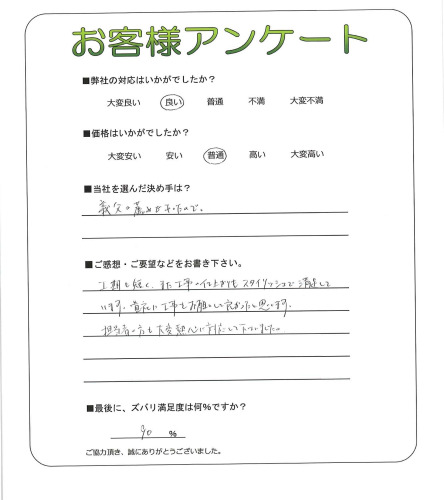 お客様アンケート
■弊社の対応はいかがでしたか？
大変良い 良い 普通 不満 大変不満
■価格はいかがでしたか？
大変安い 安い 普通 高い 大変高い
■当社を選んだ決め手は？
義父の薦めがあったので。
■ご感想・ご要望などをお書き下さい。
工期も短く、また工事の仕上がりもスタイリッシュで満足して
います。貴社に工事をお願いして良かったと思います。
担当者の方も大変熱心に対応して下さいました。
■最後に、ズバリ満足度は何%ですか？
90 %
ご協力頂き、誠にありがとうございました。